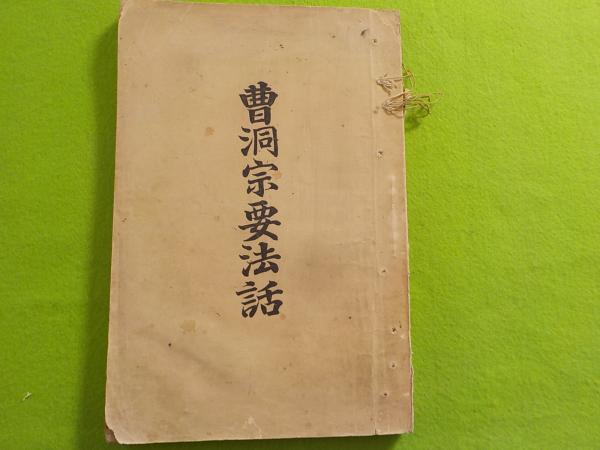 曹洞宗要法話